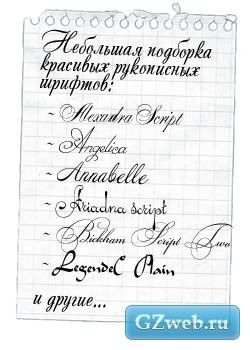 Небольшая подборка
красивых рукописных
шрифтов:
~ Alexandra Script
~ Angelica
~ Annabelle
~ Ariadna script
~ Bickham Script Two
~ Legendel Plain
и другие...
GZweb.ru